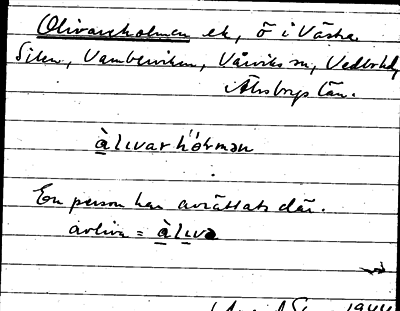 Olivareholmen ek, ö i Västra
Silen, Vambsviken, Vårviks sn, Vedbo hd,
Älvsborgs län.
àlıvar hòlmən
En person har avrättats där.
avliva = àlıva
1944